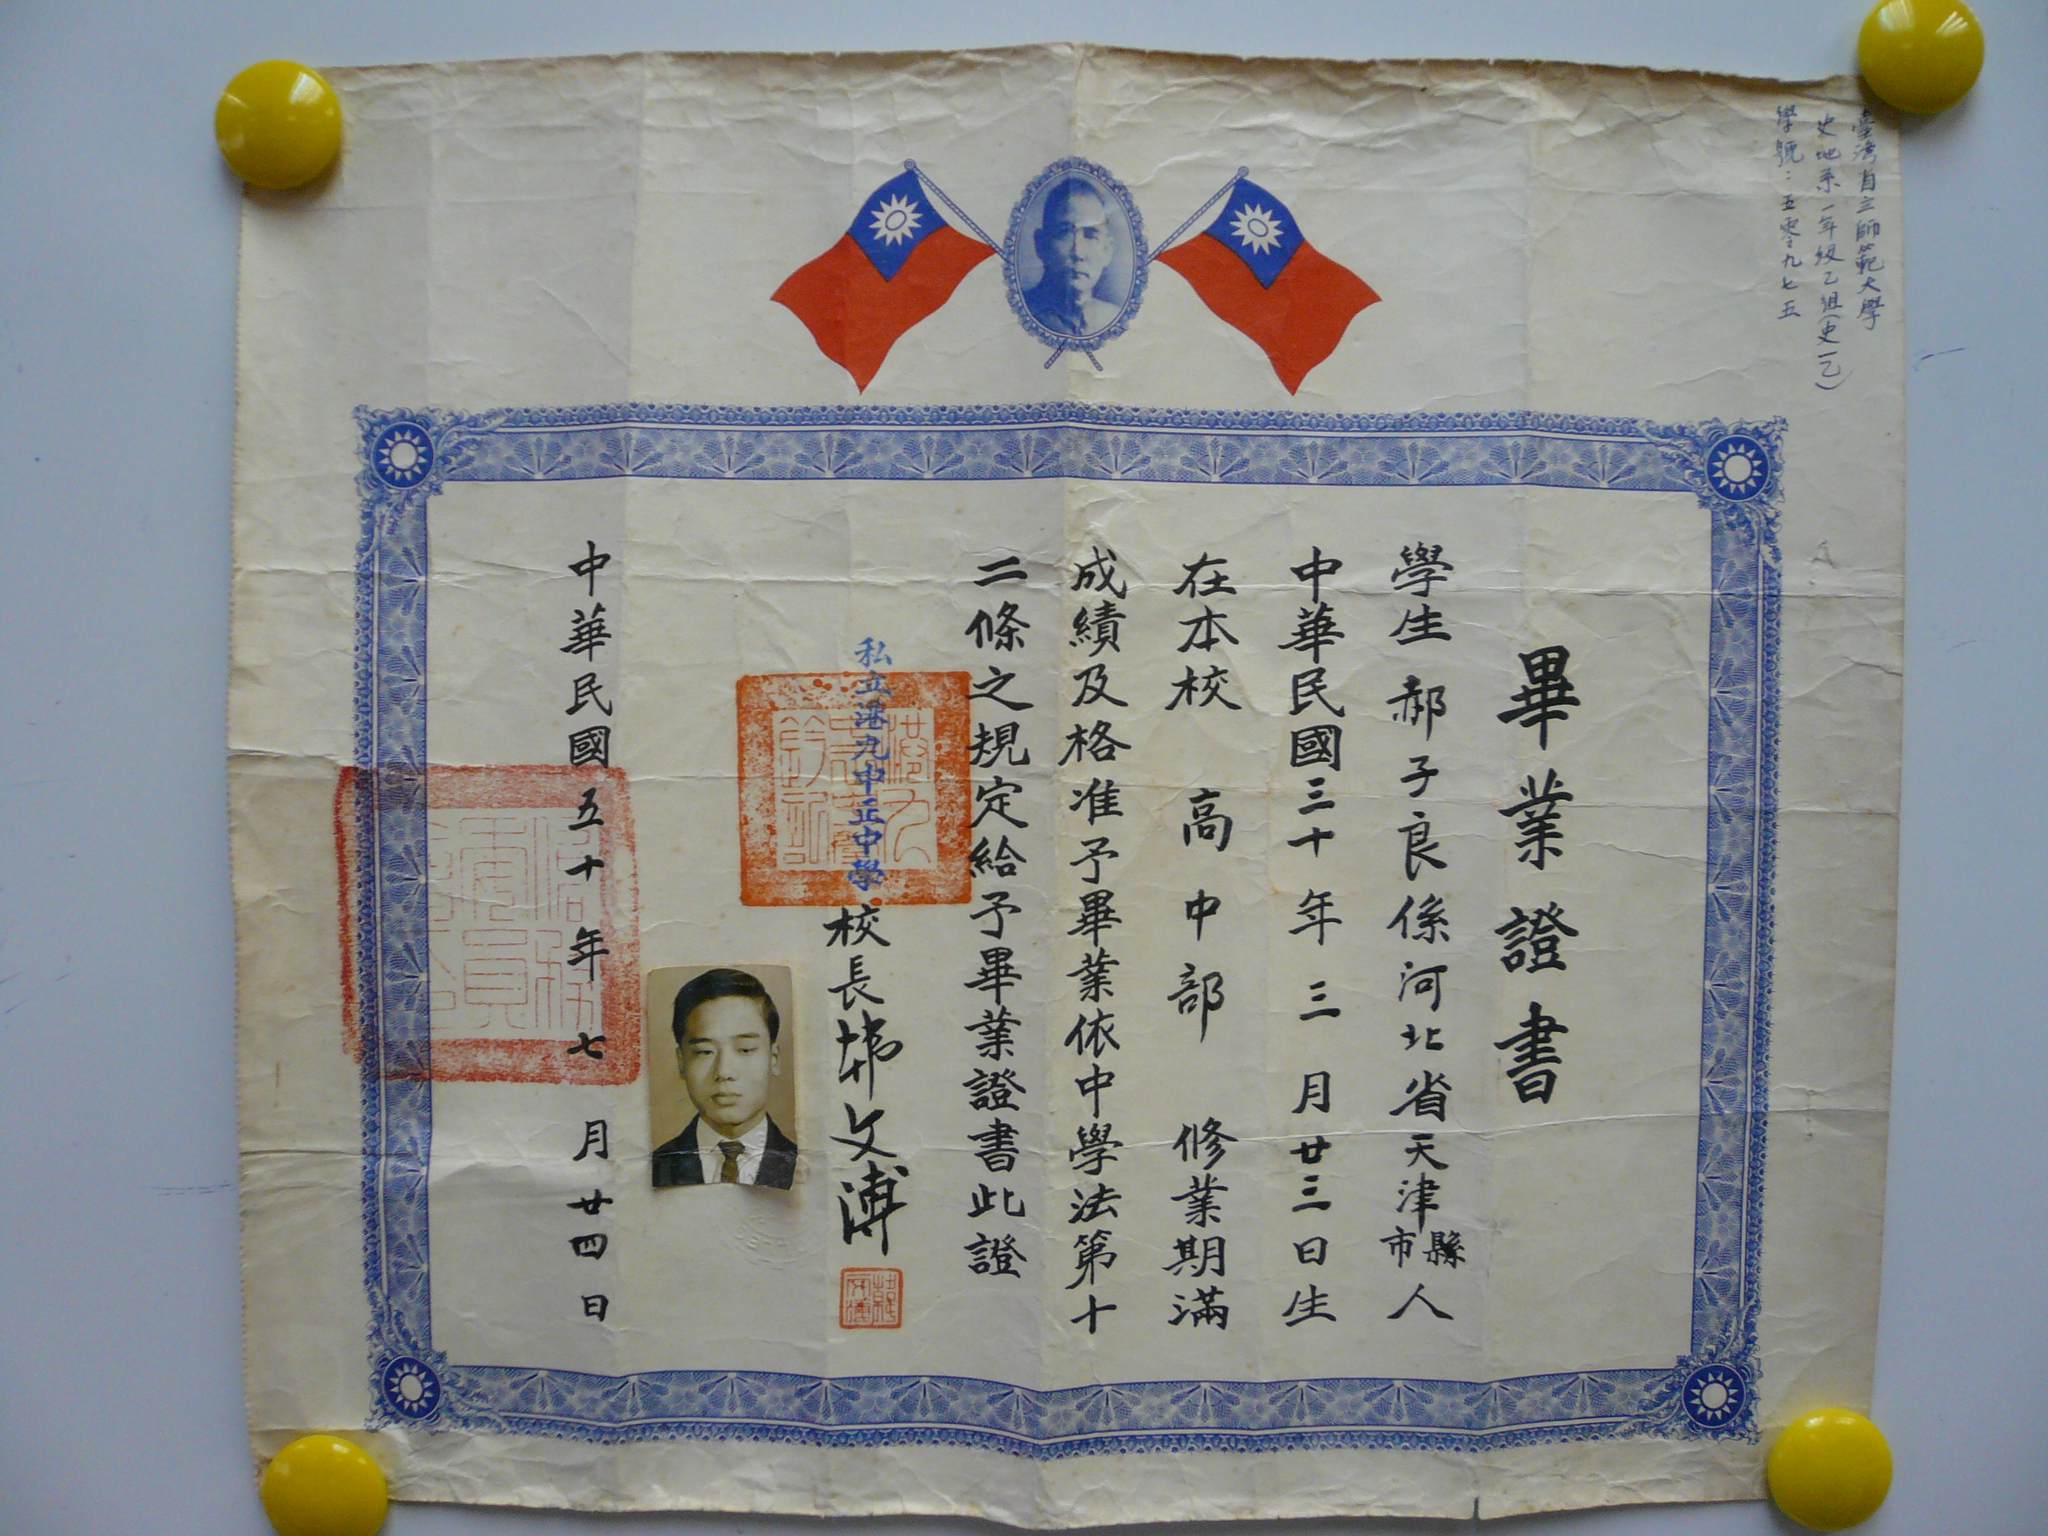 臺灣省立師範大學
史地系一年級乙組(史一乙)
學號：五零九七五
畢業證書
學生郝子良係河北省天津縣市人
中華民國三十年三月廿三日生
在本校高中部修業期滿
成績及格准予畢業依中學法第十
二條之規定給予畢業證書此證
私立港九中正中學
校長
文溥
中華民國五十年七月廿四日